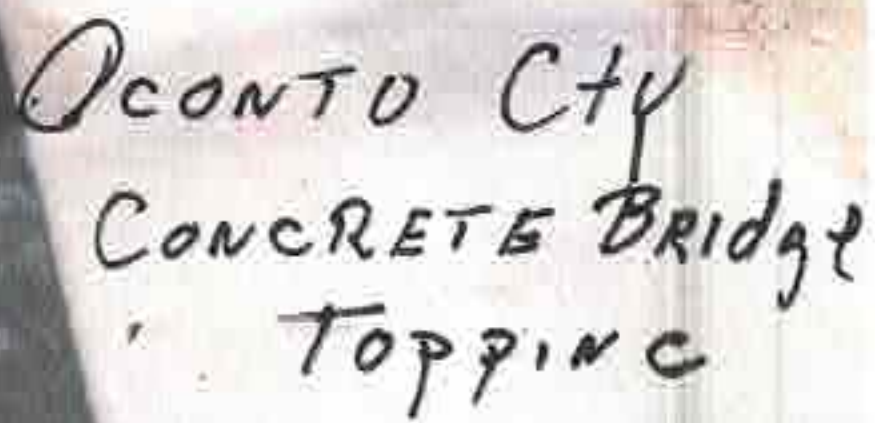 Oconto Cty
Concrete Bridge
Topping